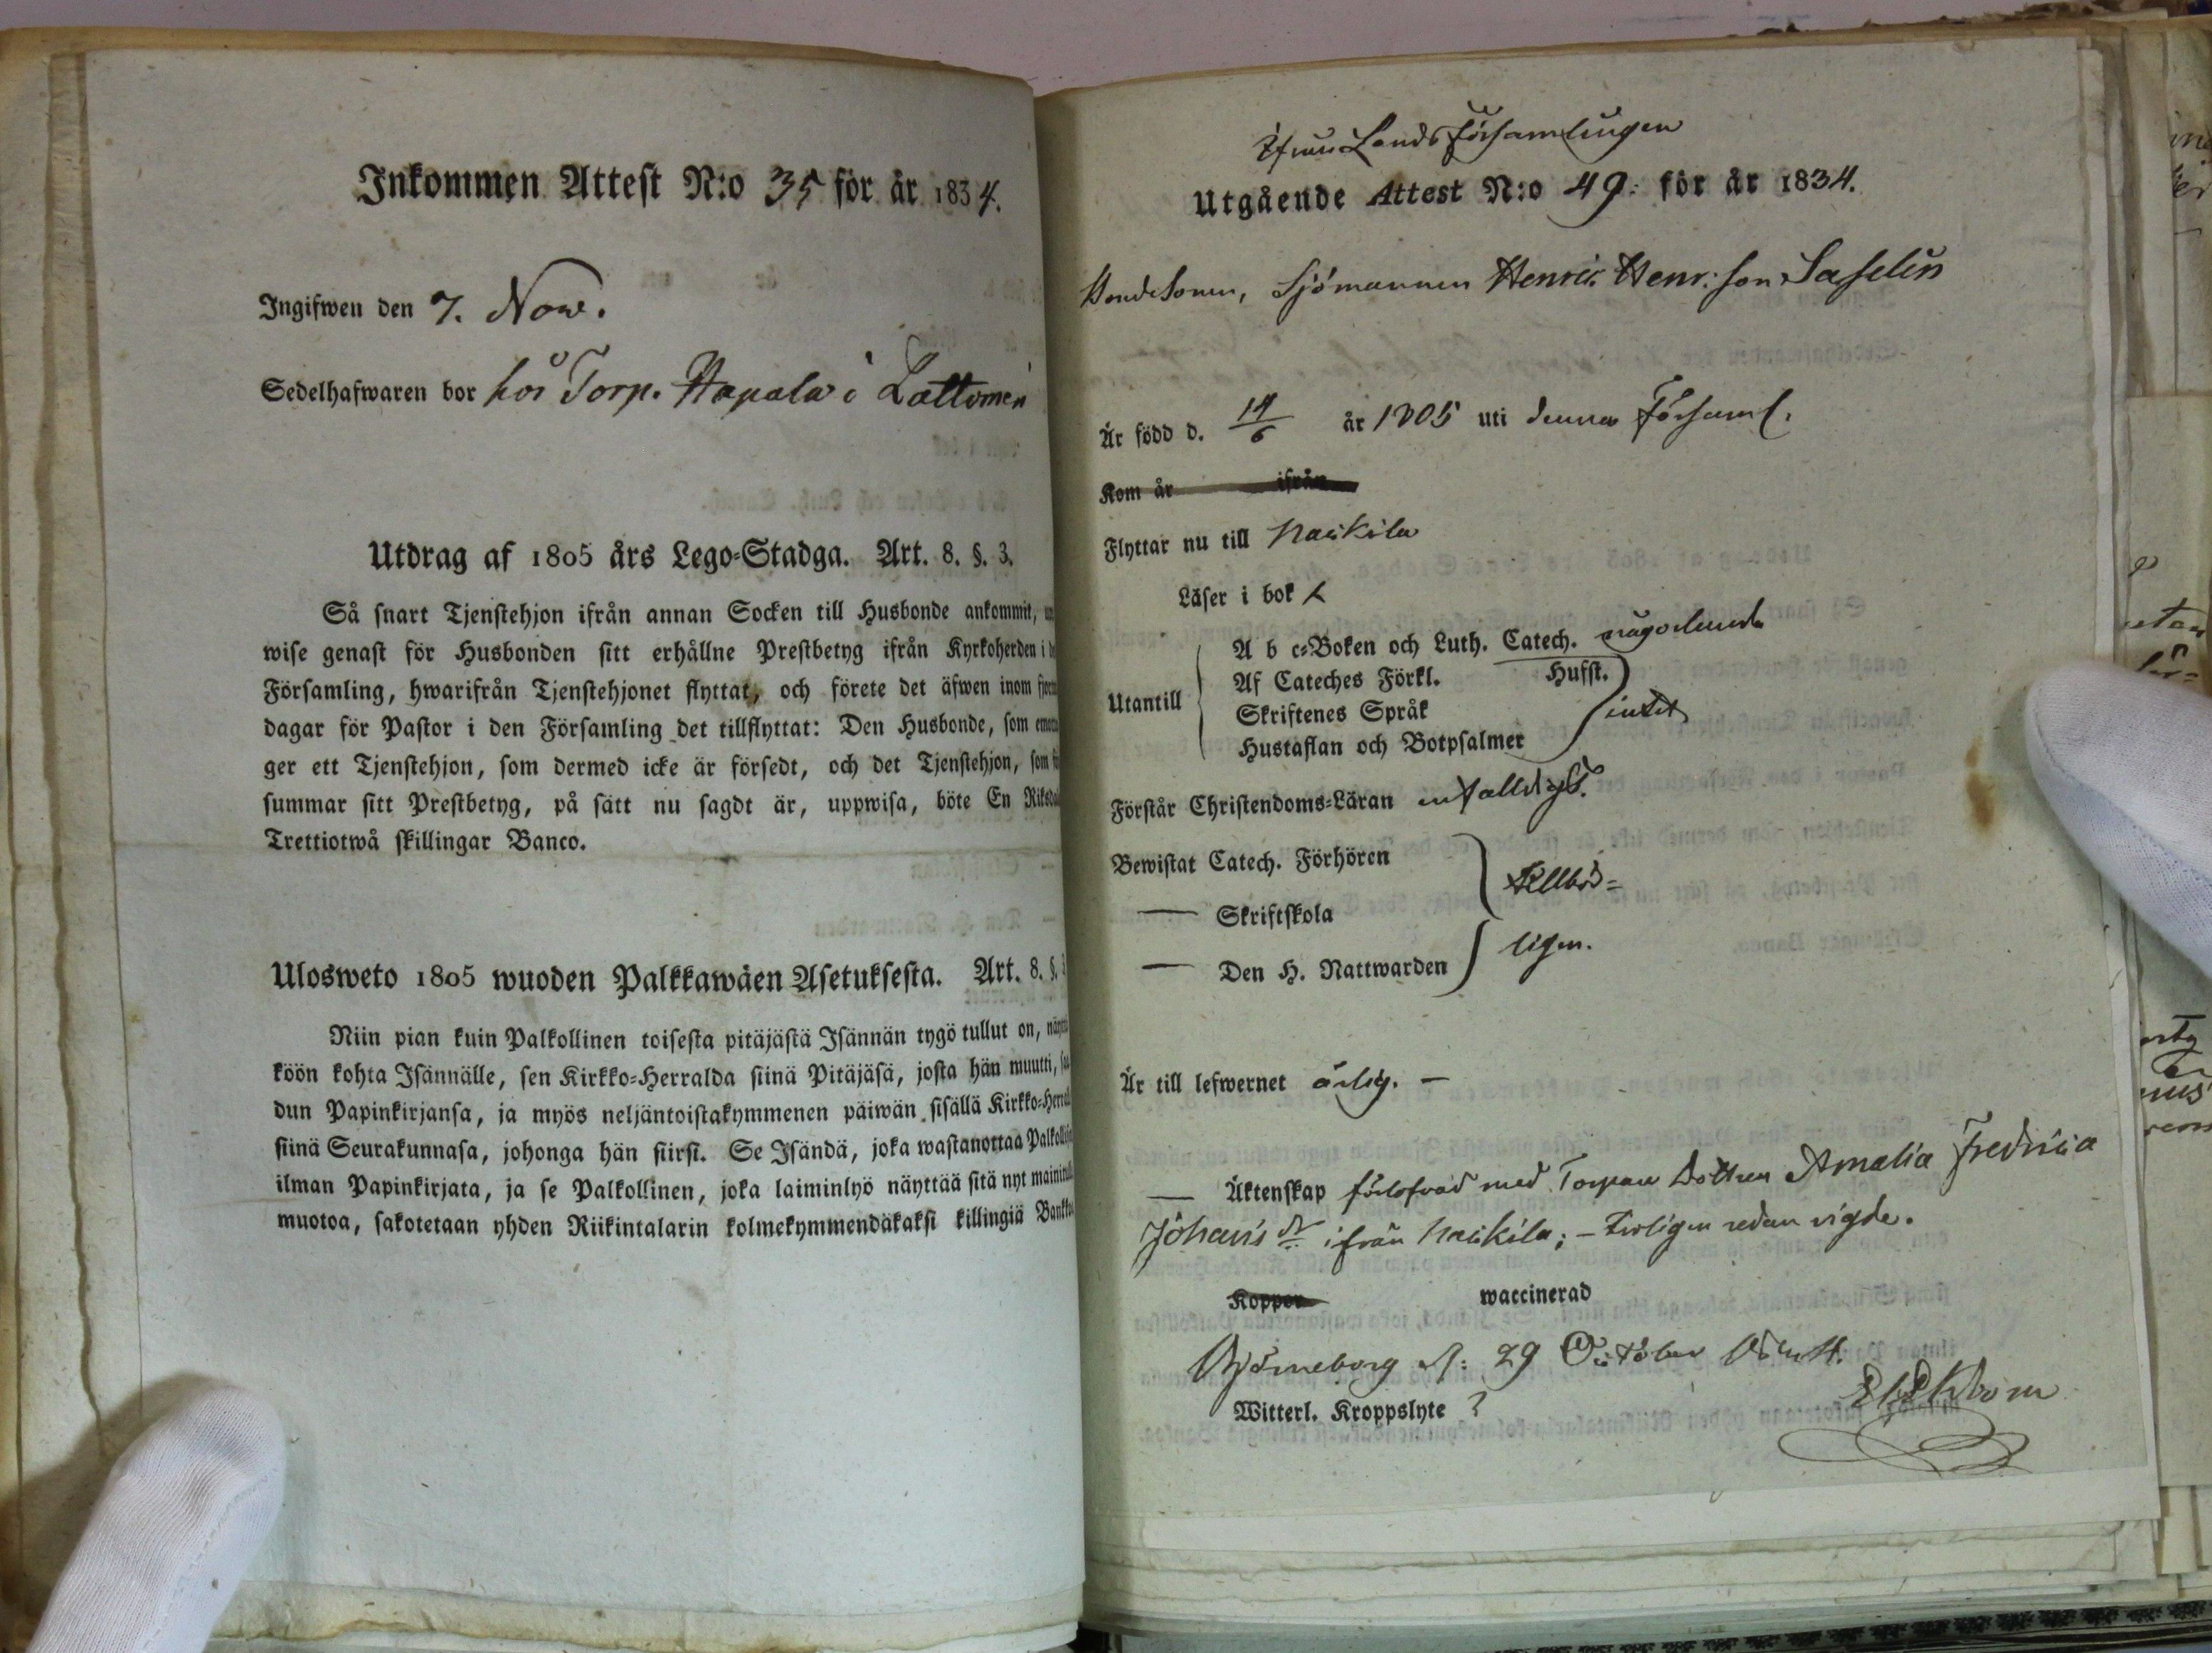 Inkommen Attest N:o 35 för år 1834.
Ingifwen den 7. Nov.
Sedelhafwaren bor hos Torp. Hapala i Lattomeri
Utdrag af 1805 års Lego-Stadga. Art. 8. §. 3.
Så snart Tjenstehjon ifrån annan Socken till Husbonde ankommit,
wise genast för Husbonden sitt erhållne Prestbetyg ifrån Kyrkoherden i
Församling, hwarifrån Tjenstehjonet flyttat, och förete det äfwen inom
dagar för Pastor i den Församling det tillflyttat: Den Husbonde, som
ger ett Tjenstehjon, som dermed icke är försedt, och det Tjenstehjon, som
summar sitt Prestbetyg, på sätt nu sagdt är, uppwisa, böte En
Trettiotwå skillingar Banco.
Ulosweto 1805 wuoden Palkkawäen Asetuksesta. Art. 8. §.
Niin pian kuin Palkollinen toisesta pitäjästä Isännän tygö tullut on,
köön kohta Isännälle, sen Kirkko-Herralda siinä Pitäjäsä, josta hän muutti,
dun Papinkirjansa, ja myös neljäntoistakymmenen päiwän sisällä
siinä Seurakunnasa, johonga hän siirsi. Se Isändä, joka wastanottaa
ilman Papinkirjata, ja se Palkollinen, joka laiminlyö näyttää sitä nyt
muotoa, sakotetaan yhden Riikintalarin kolmekymmendäkaksi killingiä
Ifrån Landsförsamlingen
Utgående Attest N:o 49. för år 1834.
Bondesonen, Sjömannen Henric Henr:son Saselin
Är född d. 14/6 år 1805 uti denna Församl.
Kom år ifrån
Flyttar nu till Nackila
Läser i bok
Utantill
A b c-Boken och Luth. Catech. någorlunda
Af Cateches Förkl. Husst.
Skriftenes Språk intet
Hustaflan och Botpsalmer
Förstår Christendoms-Läran enfalldigt.
Bewistat Catech. Förhören
— Skriftskola
— Den H. Nattwarden
ligen.
Är till lefwernet ärlig. —
— Äktenskap förlofvad med Torpare Dottren Amalia Fredrica
Johans dr ifrån Nackila; — Troligen redan vigde.
Koppor waccinerad
Björneborg d: 29 October 1834.
Witterl. Kroppslyte ?